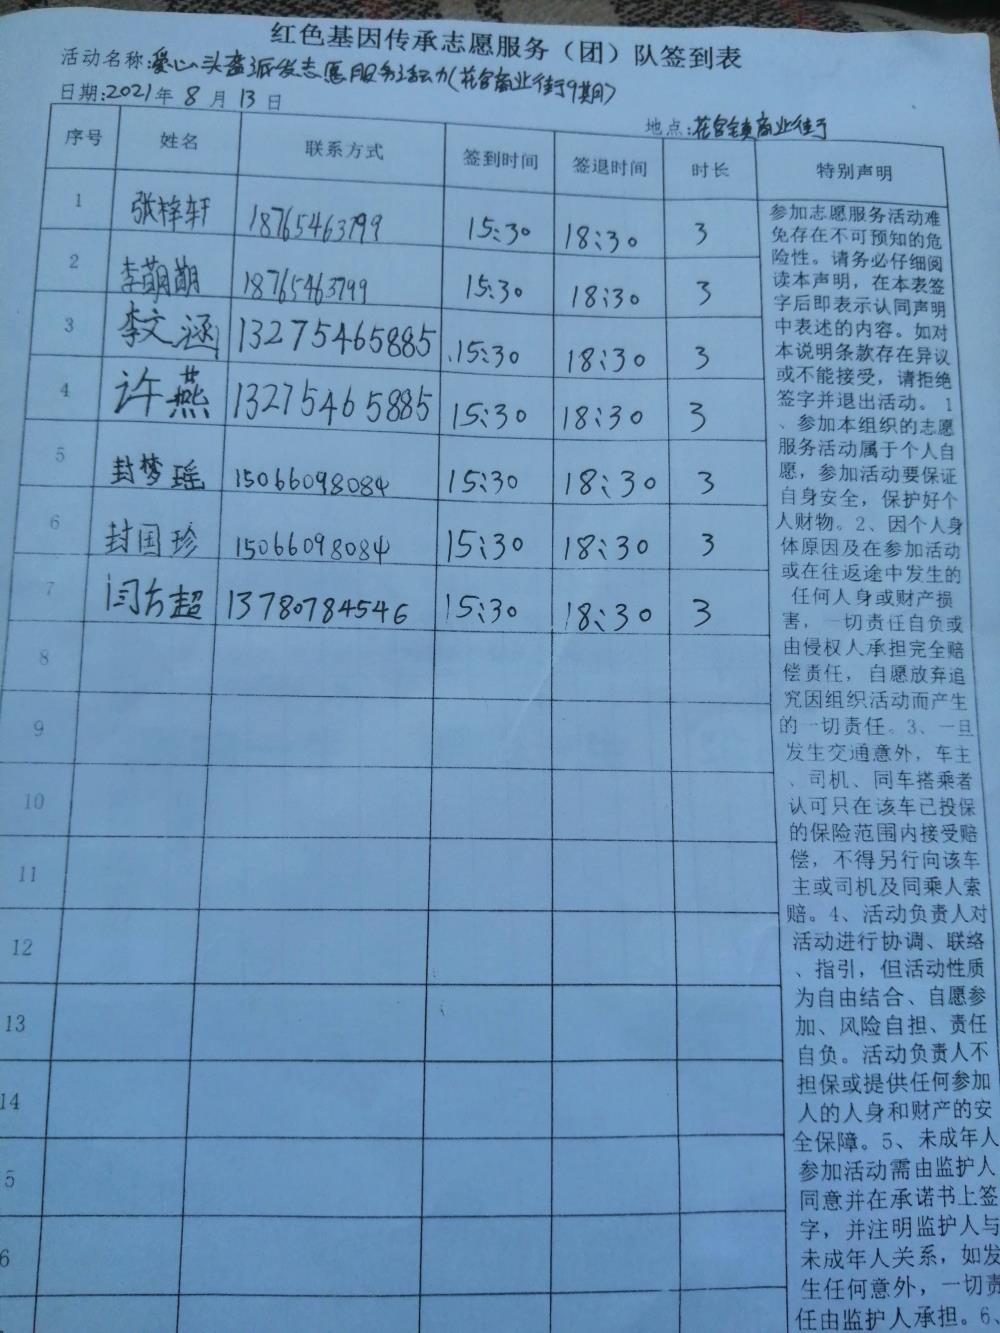 红色基因传承志愿服务（团）队签到表
活动名称:爱心头盔派发志愿服务活动(花官商业街9期)
日期:2021年 8 月 13 日
地点:花官镇商业街
序号 姓名 联系方式 签到时间 签退时间 时长 特别声明
1 张梓轩 18765463799 15:30 18:30 3
2 李萌萌 18765463799 15:30 18:30 3
3 李文涵 13275465885 15:30 18:30 3
4 许燕 13275465885 15:30 18:30 3
5 封梦瑶 15066098084 15:30 18:30 3
6 封国珍 15066098084 15:30 18:30 3
7 闫方超 13780784546 15:30 18:30 3
8
9
10
11
12
13
14
5
6
参加志愿服务活动难
免存在不可预知的危
险性。请务必仔细阅
读本声明，在本表签
字后即表示认同声明
中表述的内容。如对
本说明条款存在异议
或不能接受，请拒绝
签字并退出活动。1
、参加本组织的志愿
服务活动属于个人自
愿，参加活动要保证
自身安全，保护好个
人财物。2、因个人身
体原因及在参加活动
或在往返途中发生的
任何人身或财产损
害，一切责任自负或
由侵权人承担完全赔
偿责任，自愿放弃追
究因组织活动而产生
的一切责任。3、一旦
发生交通意外，车主
、司机、同车搭乘者
认可只在该车已投保
的保险范围内接受赔
偿，不得另行向该车
主或司机及同乘人索
赔。4、活动负责人对
活动进行协调、联络
、指引，但活动性质
为自由结合、自愿参
加、风险自担、责任
自负。活动负责人不
担保或提供任何参加
人的人身和财产的安
全保障。5、未成年人
参加活动需由监护人
同意并在承诺书上签
字，并注明监护人与
未成年人关系，如发
生任何意外，一切责
任由监护人承担。6、